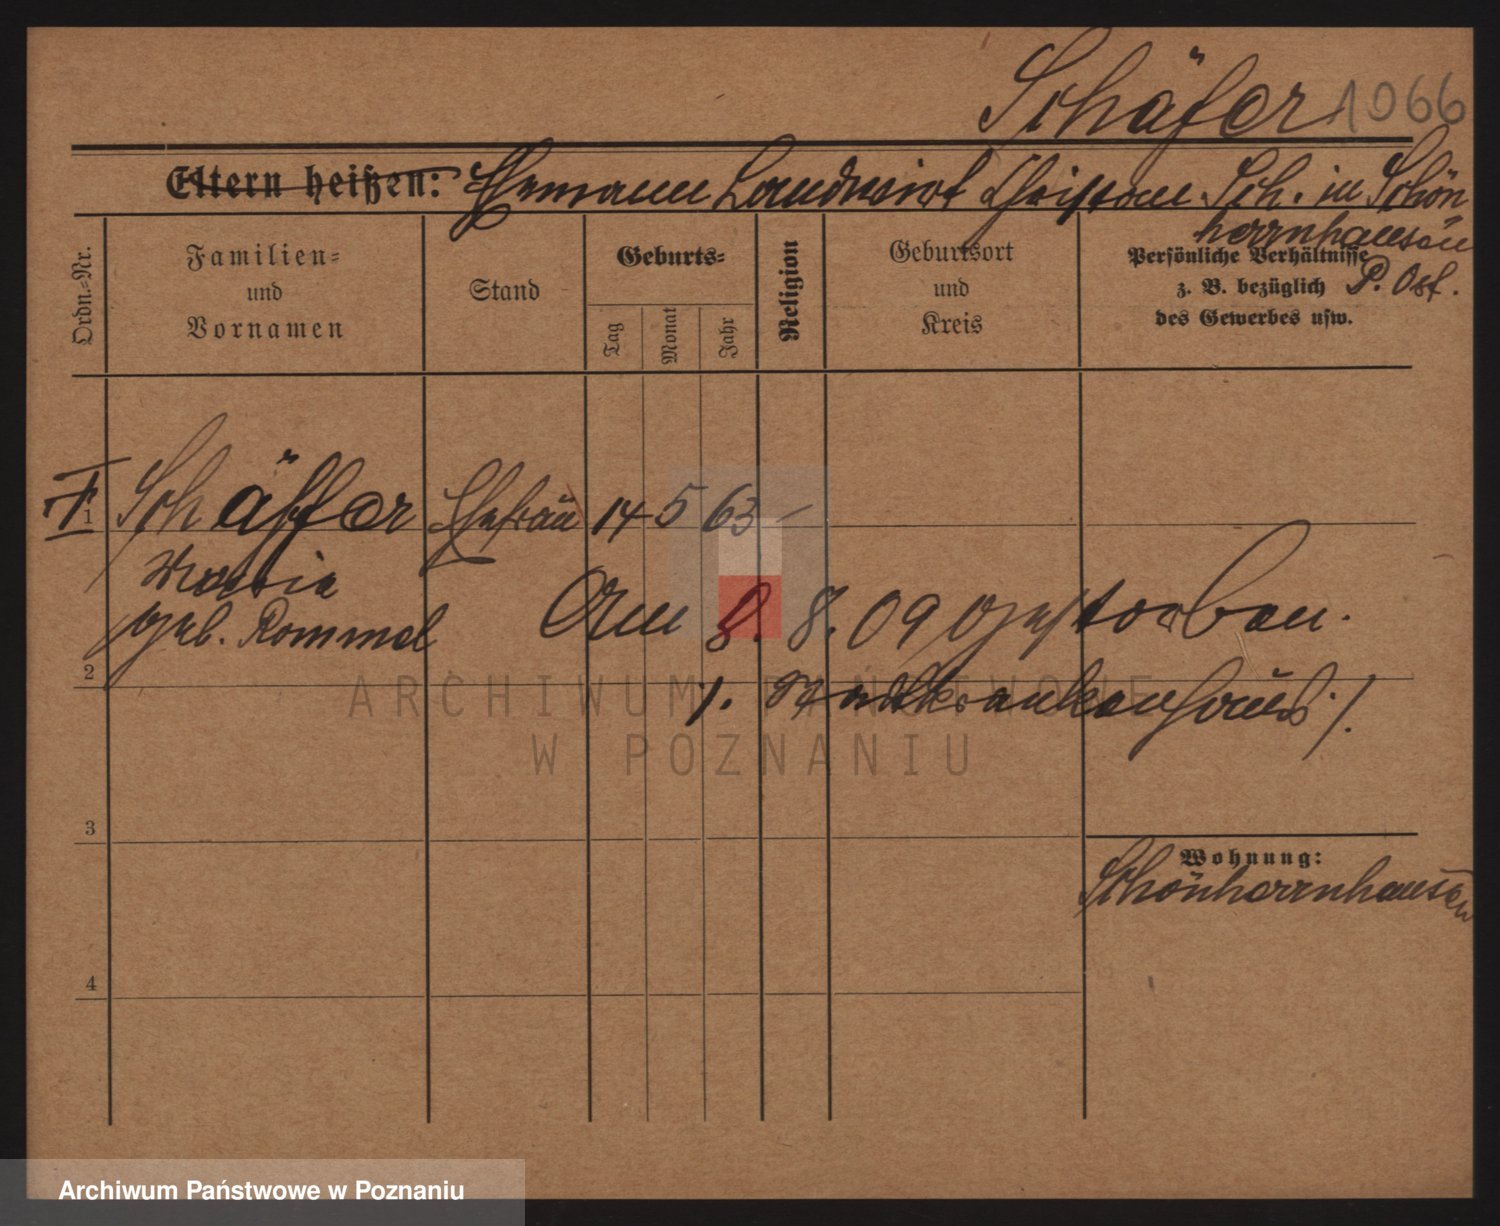 Schäfer 1066
Eltern heißen: Ehemann Landwirt Christian Sch. in Schön
herrnhausen
P. Ost.
Ordn.=Nr.
Familien=
und
Vornamen
Stand
Geburts=
Tag
Monat
Jahr
Religion
Geburtsort
und
Kreis
Persönliche Verhältnisse
z. B. bezüglich
des Gewerbes usw.
1 Schäffer Ehefrau 14 5 63 –
Maria
geb. Rommel
Am 8. 8. 09 gestorben.
2
/. Stadtkrankenhaus ./.
ARCHIWUM PAŃSTWOWE
W POZNANIU
3
Wohnung:
Schönherrnhausen
4
Archiwum Państwowe w Poznaniu